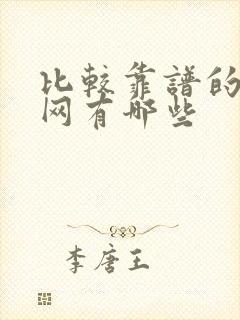 比较靠譜的
网有哪些
李唐王